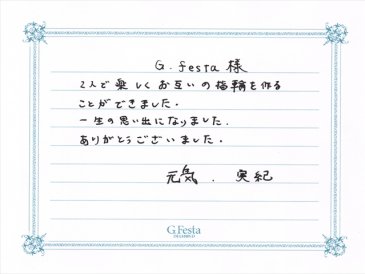 G.festa 様
2人で楽しくお互いの指輪を作る
ことができました.
一生の思い出になりました.
ありがとうございました.
元気. 実紀
G.Festa